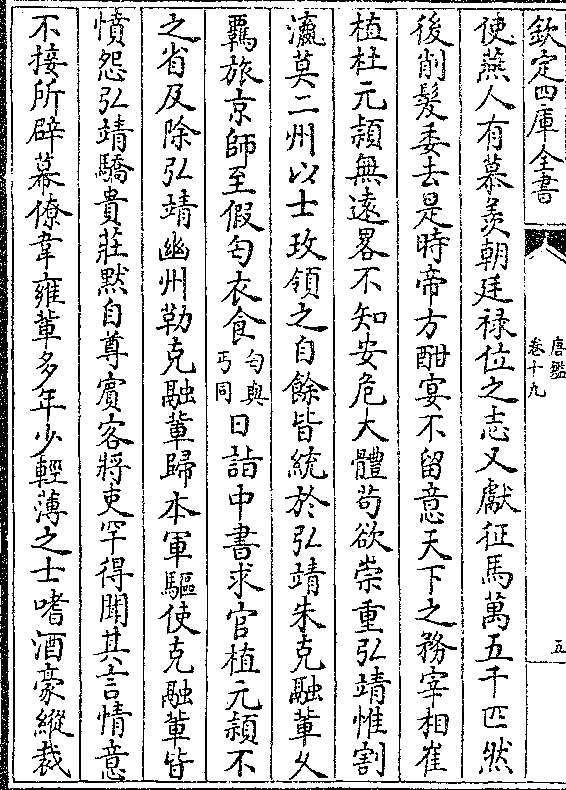 欽定四庫全書
唐鑑
卷十九
五
使燕人有慕羨朝廷祿位之志又獻征馬萬五千匹然
後削髮委去是時帝方酣宴不留意天下之務宰相崔
植杜元穎無遠畧不知安危大體茍欲崇重弘靖惟割
瀛莫二州以士玫領之自餘皆統於弘靖朱克融軰久
羈旅京師至假匄衣食匄與丐同日詣中書求官植元穎不
之省及除弘靖幽州勒克融軰歸本軍驅使克融軰皆
憤怨弘靖驕貴莊默自尊賓客將吏罕得聞其言情意
不接所辟幕僚韋雍軰多年少輕薄之士嗜酒豪縱裁